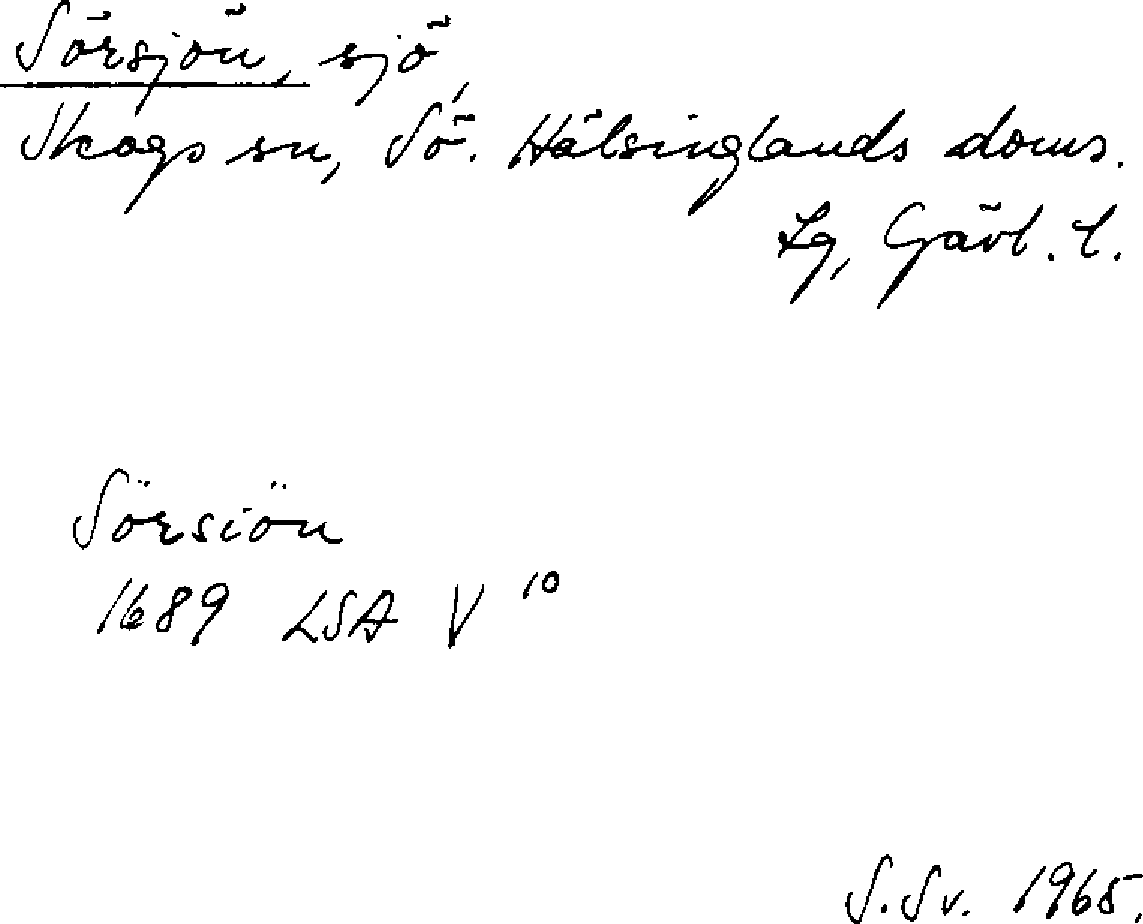 Sörsjön, sjö,
Skogs sn, Sö. Hälsinglands doms.
Lg, Gävl. l.
Sörsiön
1689 LSA V 10
S. Sv. 1965.